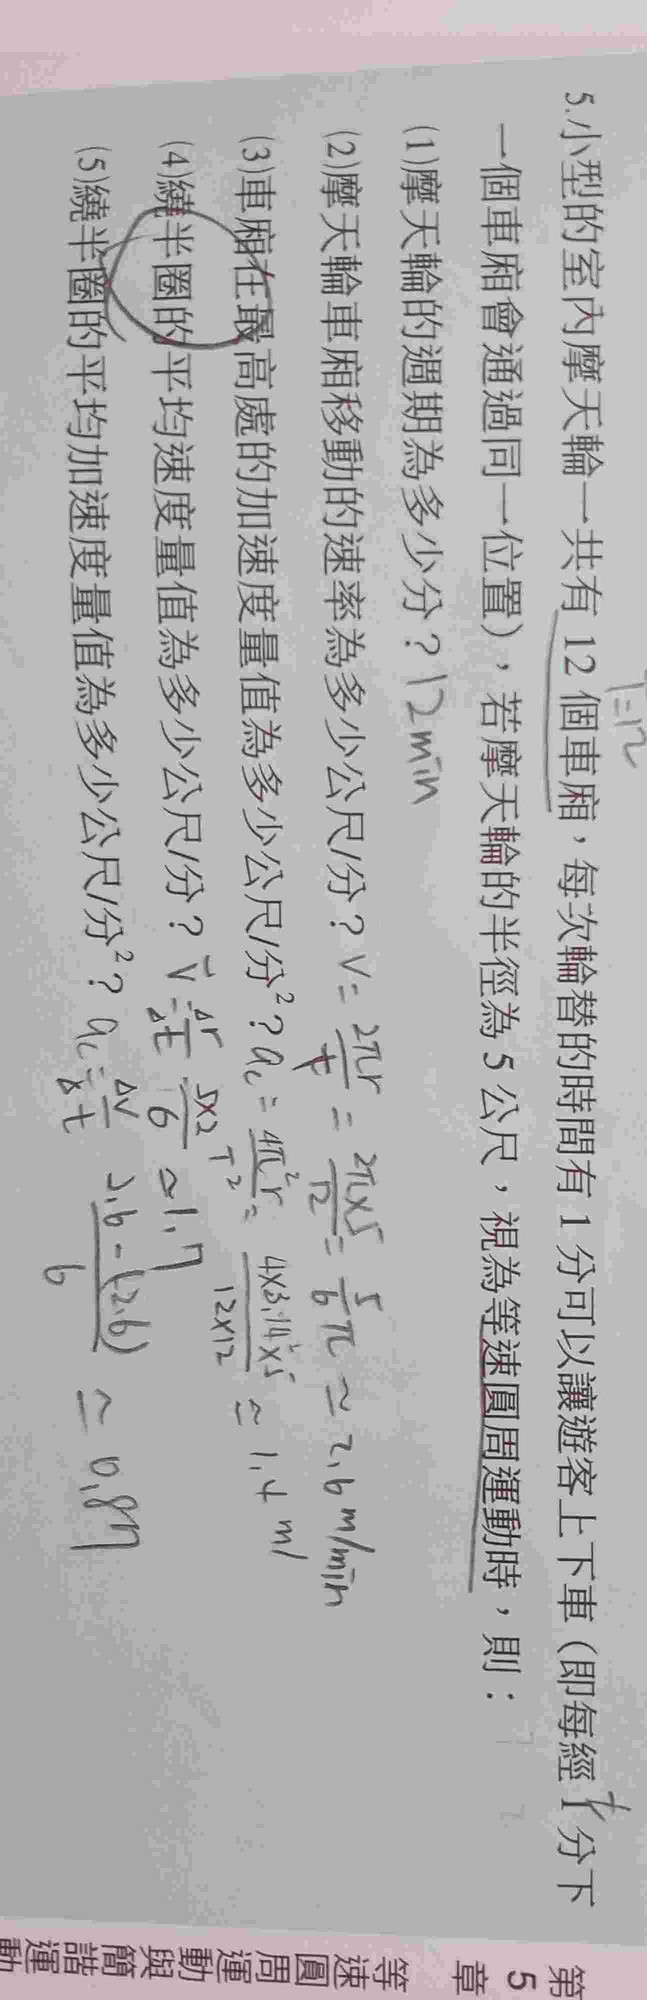 T=12
5.小型的室內摩天輪一共有 12 個車廂，每次輪替的時間有 1 分可以讓遊客上下車 (即每經 1 分下
一個車廂會通過同一位置)，若摩天輪的半徑為 5 公尺，視為等速圓周運動時，則：
(1)摩天輪的週期為多少分？12min
(2)摩天輪車廂移動的速率為多少公尺/分？ V = 2πr/t = 2π×5/12 = 5/6 π ≈ 2.6 m/min
(3)車廂在最高處的加速度量值為多少公尺/分²？ac = 4π²r/T² = 4×3.14²×5/12×12 ≈ 1.4 m/
(4)繞半圈的平均速度量值為多少公尺/分？ V̄ = Δr/Δt 5×2/6 ≈ 1.7
(5)繞半圈的平均加速度量值為多少公尺/分²？ ac = Δv/Δt 2.6-(-2.6)/6 ≈ 0.87
第
5
章
等速圓周運動與簡諧運動